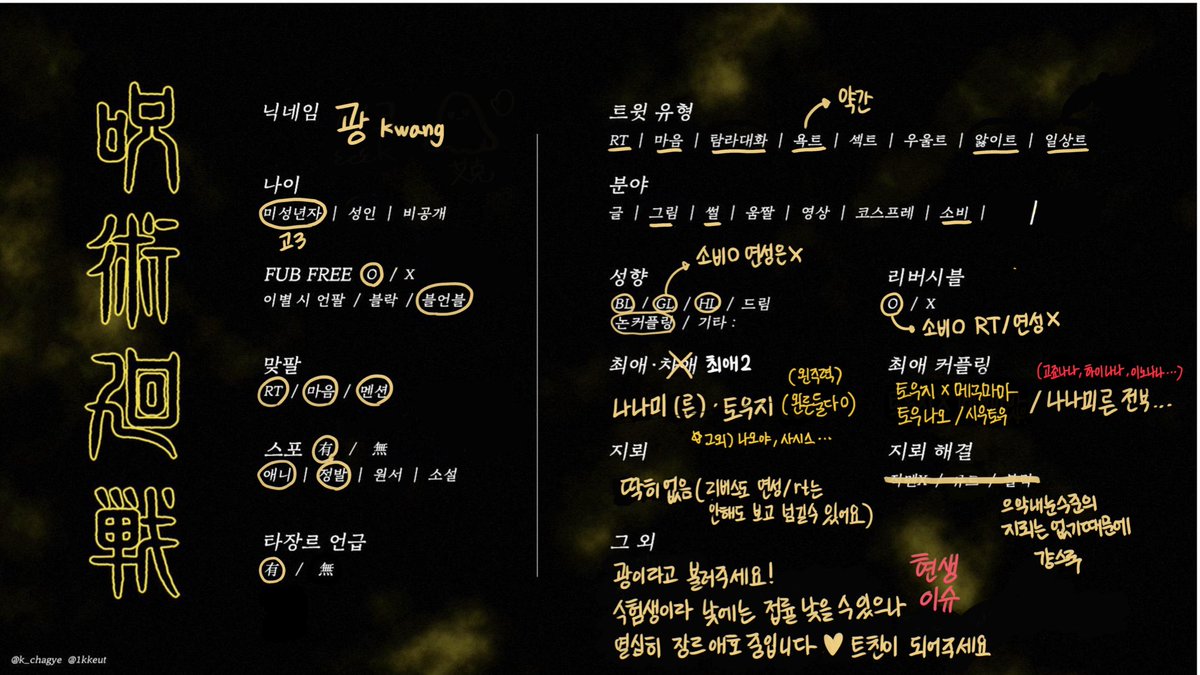 呪術廻戦
닉네임 광 kwang
나이
미성년자 | 성인 | 비공개
고3
FUB FREE O / X
이별 시 언팔 / 블락 / 블언블
맞팔
RT / 마음 / 멘션
스포 有 / 無
애니 | 정발 | 원서 | 소설
타장르 언급
有 / 無
트윗 유형
약간
RT | 마음 | 탐라대화 | 욕트 | 섹트 | 우울트 | 앓이트 | 일상트
분야
글 | 그림 | 썰 | 움짤 | 영상 | 코스프레 | 소비 |
소비O 연성은X
성향
BL / GL / HL / 드림
논커플링 / 기타 :
리버시블
O / X
소비O RT/연성X
최애·차애 최애2
(왼주력,)
나나미 (른) · 토우지 (왼른둘다O)
그외) 나오야, 사시스...
최애 커플링
(고죠나나, 하이나나, 이노나나...)
토우지 x 메구마마
토우나오 / 시우토우
/ 나나미른 전부...
지뢰
딱히 없음 (리버스도 연성/rt는
안해도 보고 넘길수 있어요)
지뢰 해결
으악내눈수준의
지뢰는 없기때문에
걍스루
그 외
광이라고 불러주세요!
수험생이라 낮에는 접률 낮을 수 있으나
현생
이슈
열심히 장르 애호 중입니다 ♥ 트친이 되어주세요
@k_chagye @1kkeut